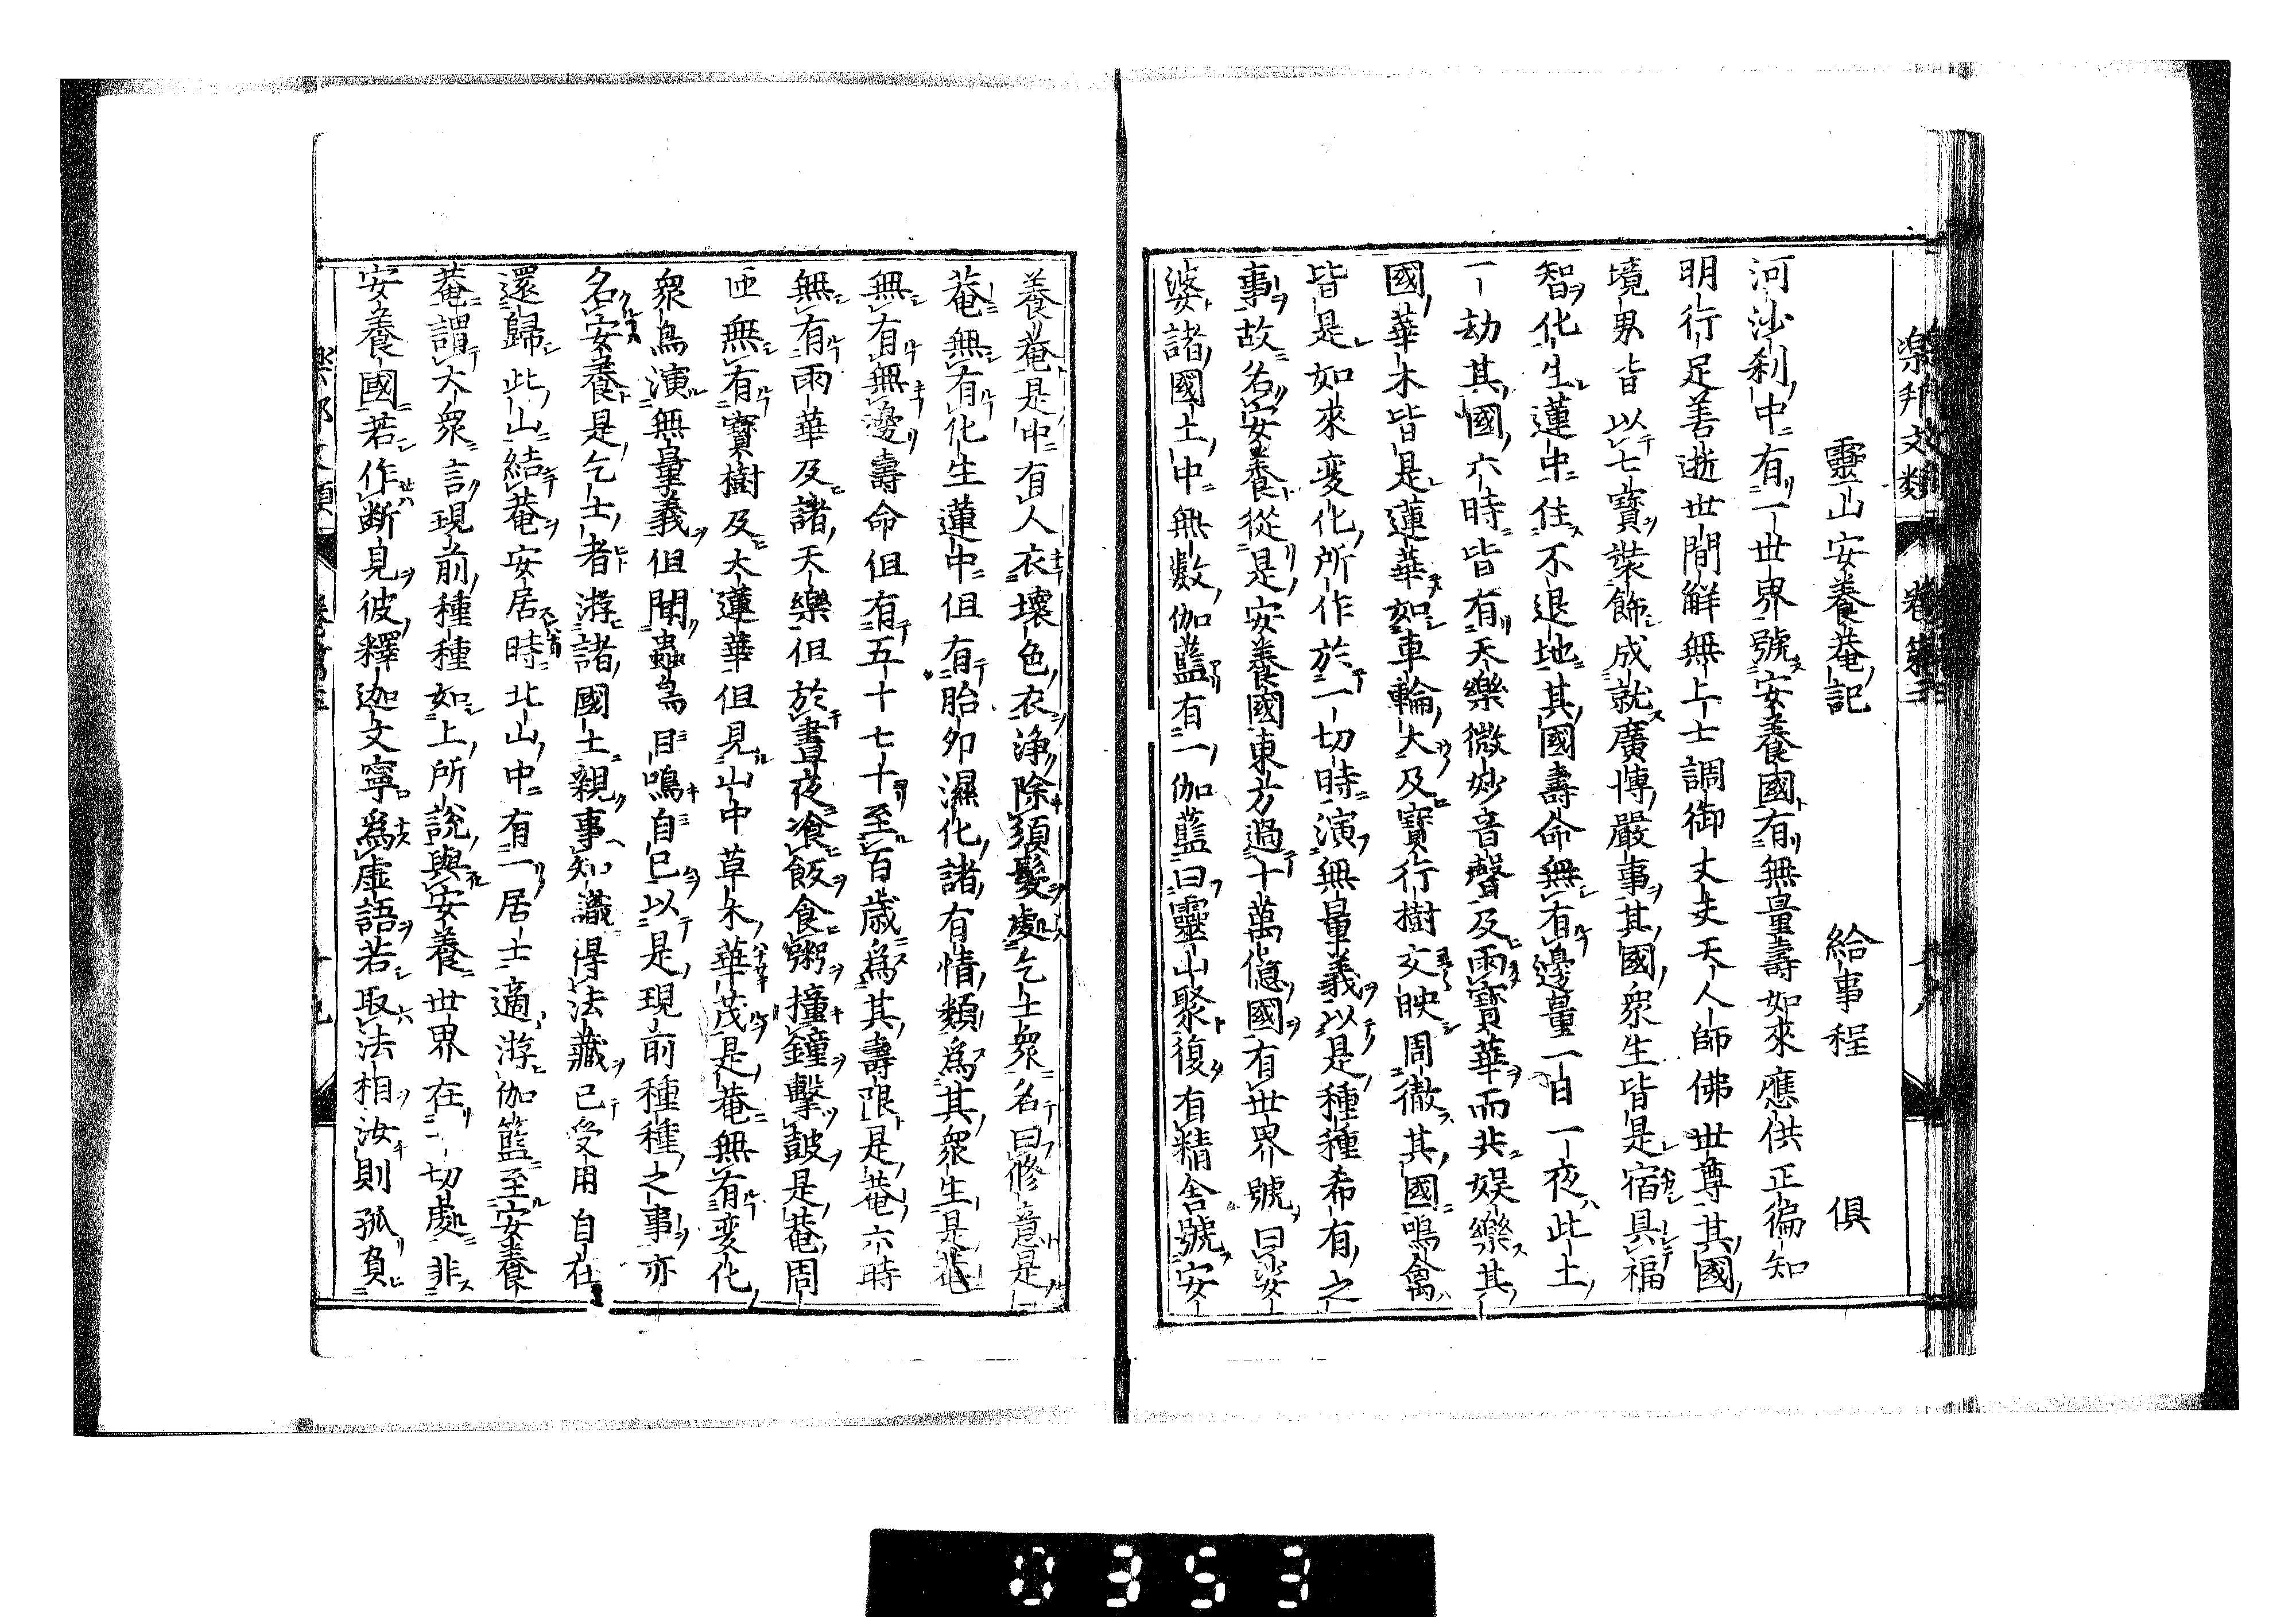 樂邦文類 卷第三
靈山安養菴記 給事程 俱
河沙剎中有一世界號安養國有無量壽如來應供正徧知
明行足善逝世間解無上士調御丈夫天人師佛世尊其國
境界皆以七寶裝飾成就廣博嚴事其國衆生皆是宿具福
智化生蓮中住不退地其國壽命無有邊量一日一夜此土
一劫其國六時皆有天樂微妙音聲及雨寶華而共娛樂其
國華木皆是蓮華如車輪大及寶行樹交映周徹其國鳴禽
皆是如來变化所作於一切時演無量義以是種種希有之
事故名安養從是安養國東方過十萬億國有世界號曰娑
婆諸國土中無數伽藍有一伽藍曰靈山聚復有精舍號安
養菴是中有人衣壞色衣淨除須髮處乞士衆名曰修意是
菴無有化生蓮中但有胎卵濕化諸有情類爲其衆生是菴
無有無邊壽命但有五十七十至百歲爲其壽限是菴六時
無有雨華及諸天樂但於晝夜飡飯食粥撞鐘擊鼓是菴周
匝無有寶樹及大蓮華但見山中草木華茂是菴無有变化
衆鳥演無量義但聞蟲鳥自鳴自已以是現前種種之事亦
名安養是乞士者游諸國土親事知識得法藏已受用自在
還歸此山結菴安居時北山中有一居士適游伽籃至安養
菴謂大衆言現前種種如上所說與安養世界在一切處非
安養國若作斷見彼釋迦文寧爲虛語若取法相汝則孤負